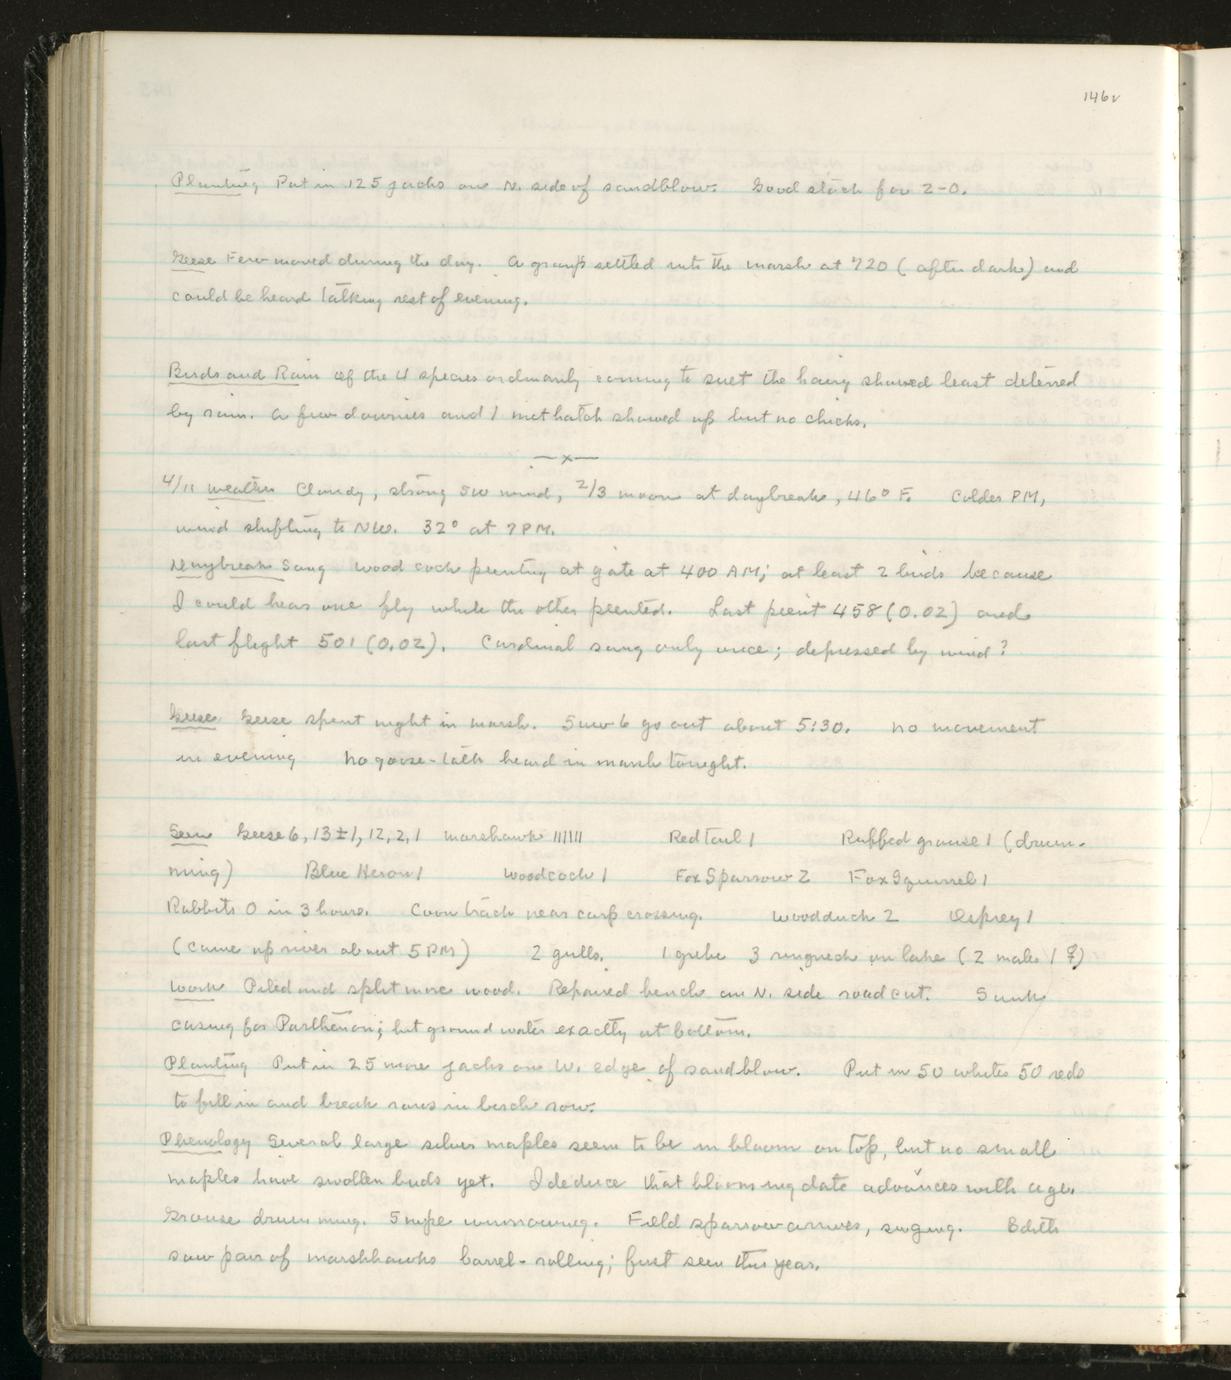 146v
Planting Put in 125 jacks on N. side of sandblow. Good stock for 2-0.
Geese Few moved during the day. A group settled into the marsh at 720 (after dark) and
could be heard talking rest of evening.
Birds and Rain Of the 4 species ordinarily coming to suet the hairy showed least deterred
by rain. A few downies and 1 nuthatch showed up but no chicks.
—x—
4/11 Weather Cloudy, strong SW wind, 2/3 moon at daybreak, 46° F. Colder PM,
wind shifting to NW. 32° at 7PM.
Daybreak Song Woodcock peenting at gate at 400 AM; at least 2 birds because
I could hear one fly while the other peented. Last peent 458 (0.02) and
last flight 501 (0.02). Cardinal sang only once; depressed by wind?
Geese Geese spent night in marsh. Saw 6 go out about 5:30. No movement
in evening No goose-talk heard in marsh tonight.
Seen Geese 6, 13±1, 12, 2, 1 Marshawk |||||| Redtail 1 Ruffed grouse 1 (drum-
ming) Blue Heron 1 Woodcock 1 Fox Sparrow 2 Fox Squirrel 1
Rabbits 0 in 3 hours. Coon track near carp crossing. Woodduck 2 Osprey 1
(came up river about 5 PM) 2 gulls. 1 grebe 3 ringneck on lake (2 males 1 ♀)
Work Piled and split more wood. Repaired bench on N. side road cut. Sunk
casing for Parthenon; hit ground water exactly at bottom.
Planting Put in 25 more jacks on W. edge of sandblow. Put in 50 whites 50 reds
to fill in and break rows in birch row.
Phenology Several large silver maples seem to be in bloom on top, but no small
maples have swollen buds yet. I deduce that blooming date advances with age.
Grouse drumming. Snipe winnowing. Field sparrow arrives, singing. Edith
saw pair of marshhawks barrel-rolling; first seen this year.